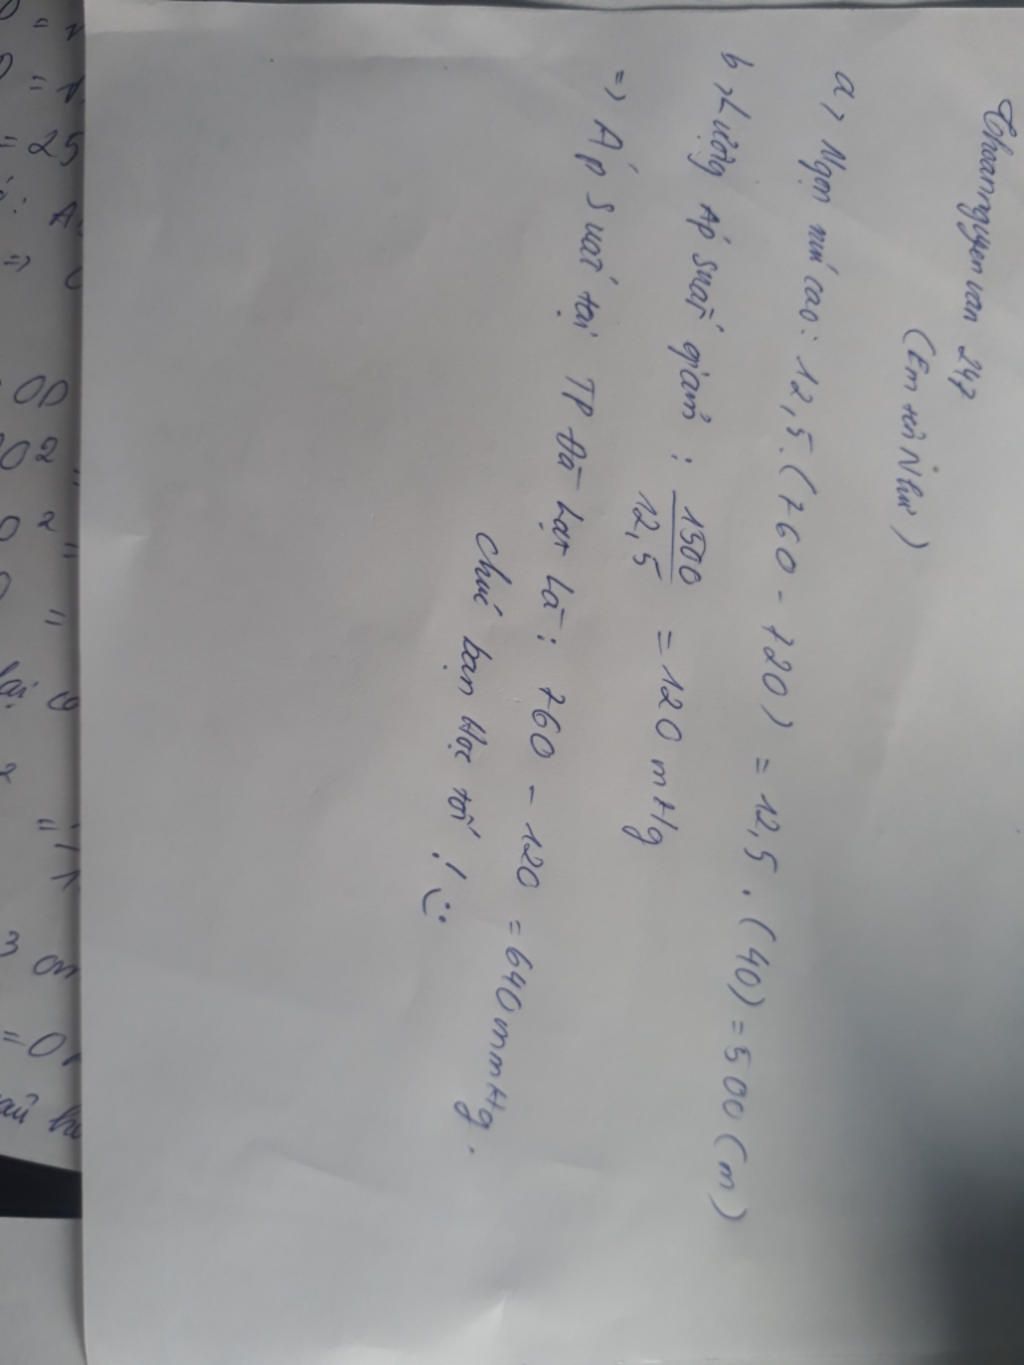 Thoannguyenvan 247
(Em tên Như)
a, Ngọn núi cao: 12,5.(760 - 720) = 12,5.(40) = 500 (m)
b, Lượng Áp suất giảm: 1500/12,5 = 120 mHg
=> Áp suất tại TP Đà Lạt Là: 760 - 120 = 640 mmHg.
Chúc bạn Học tốt! :)
= 25
OD
02
02
lại co
3 cm